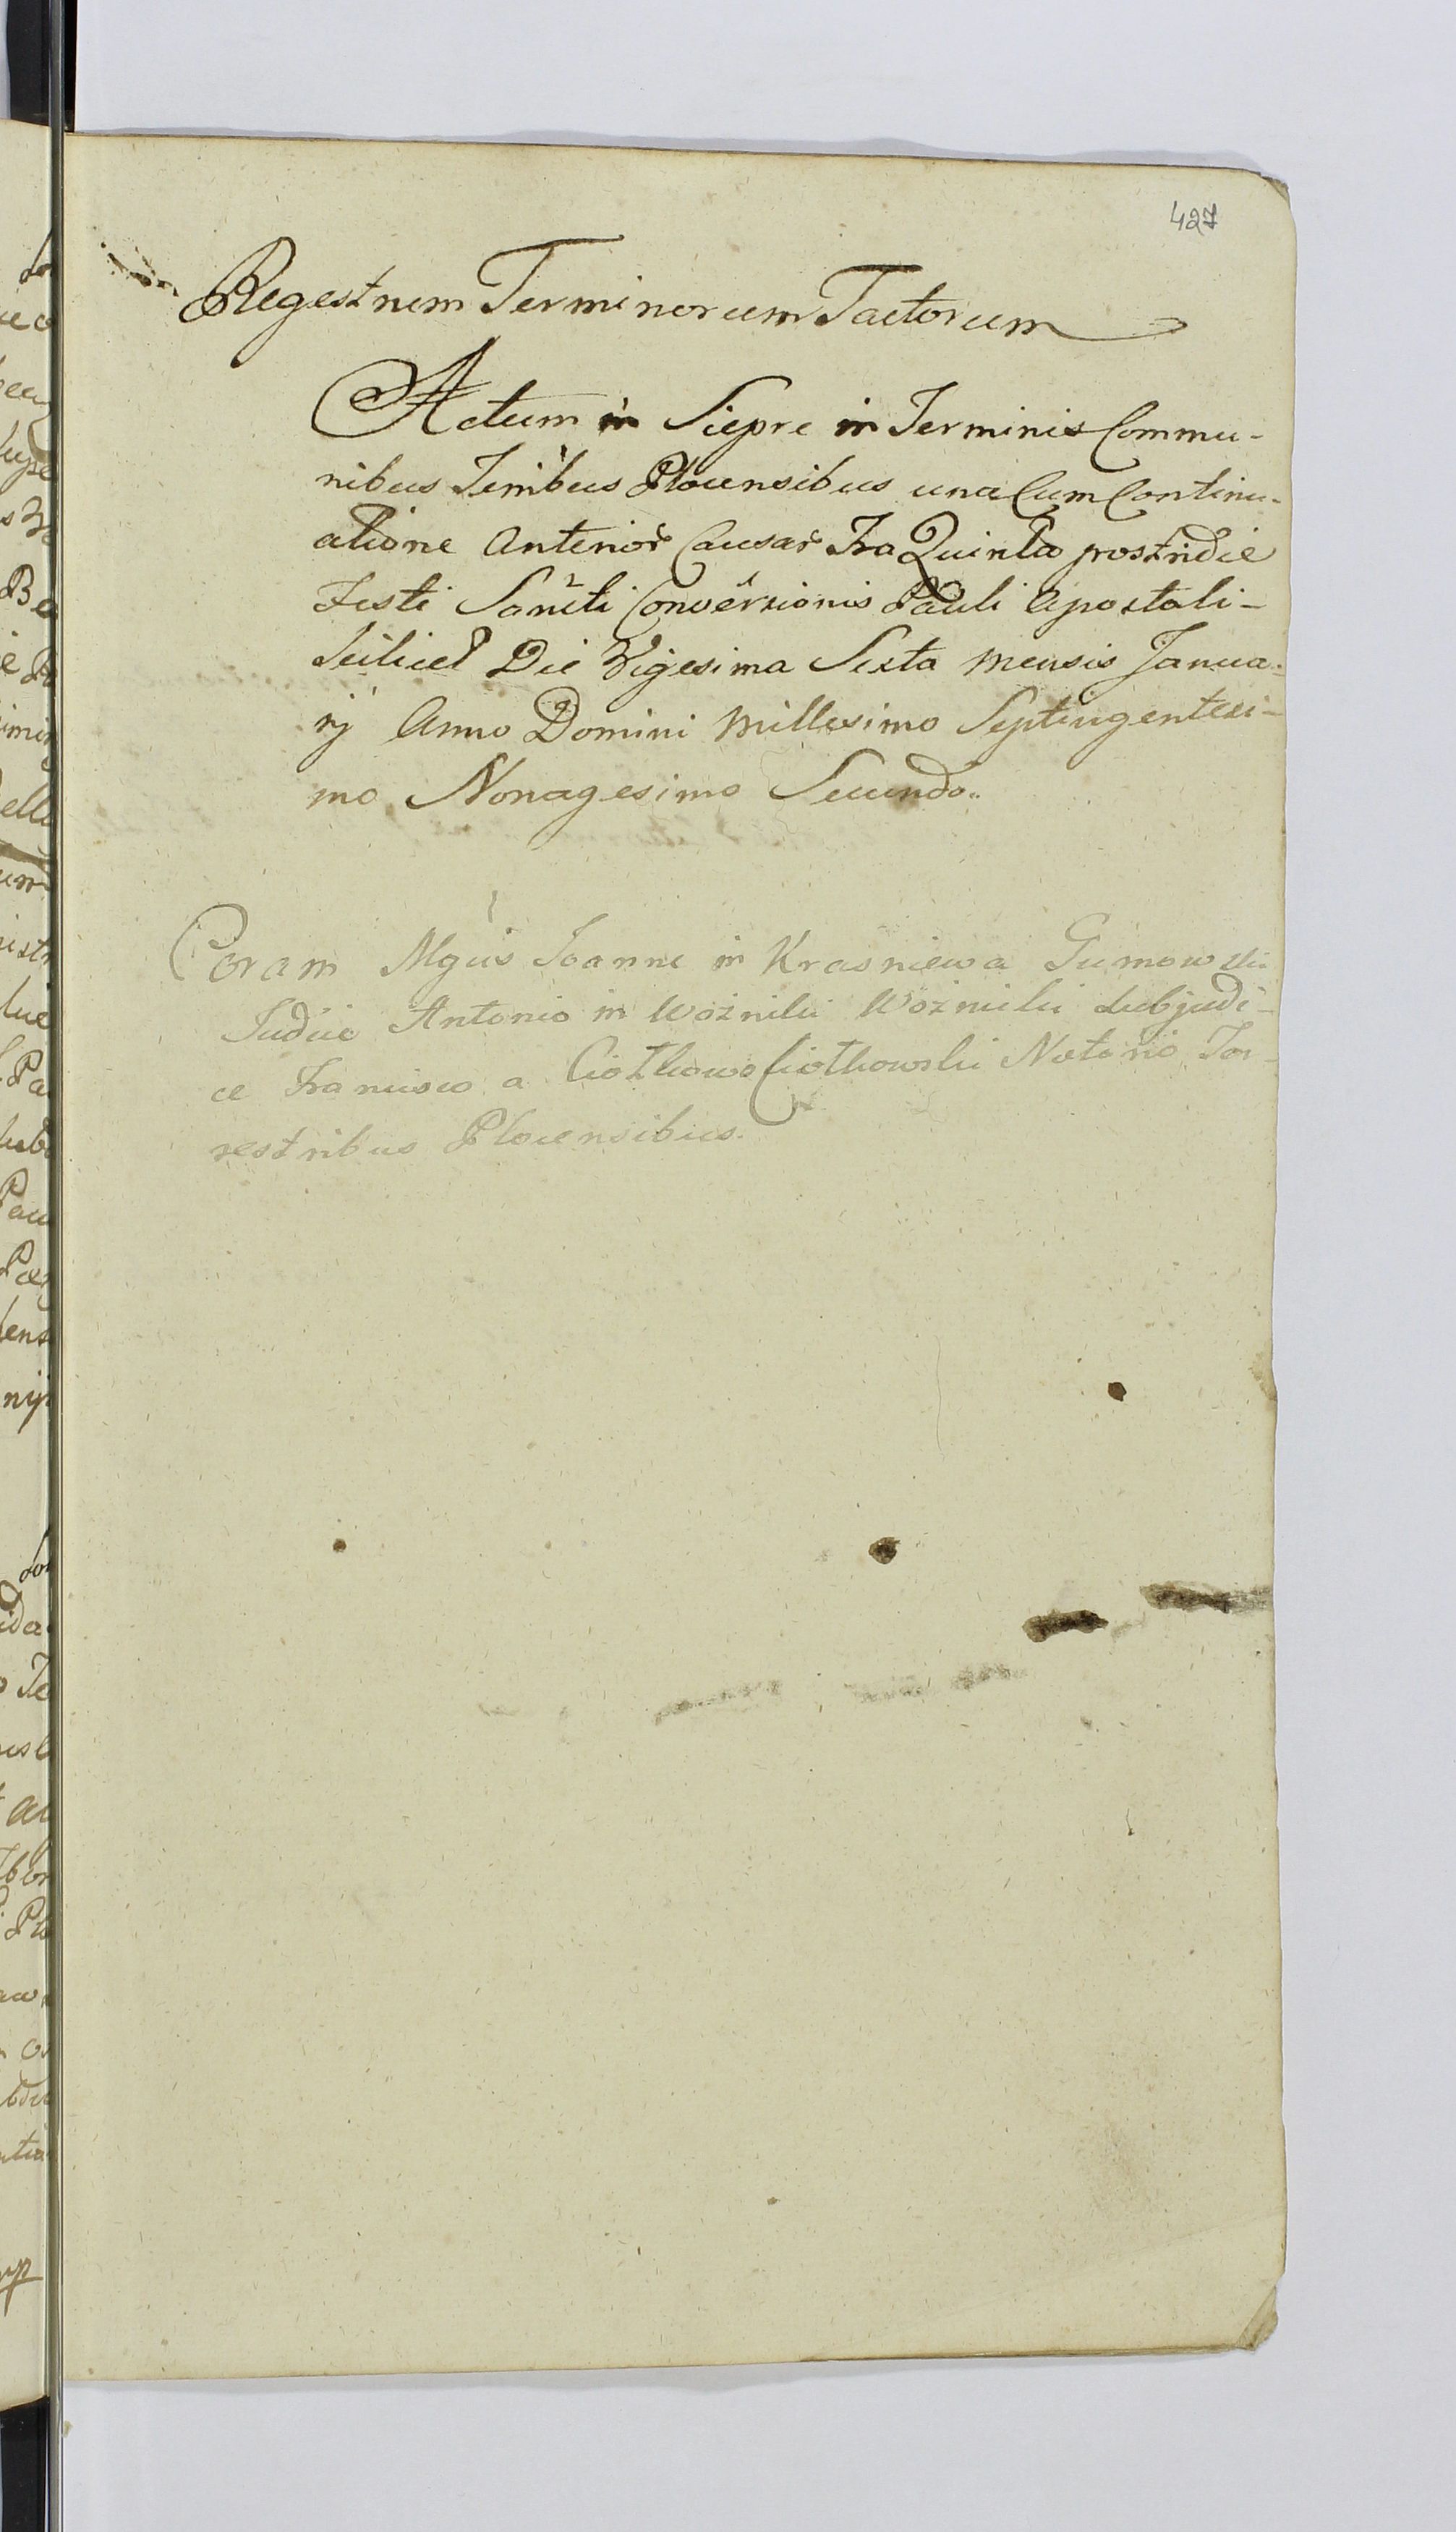 427
Regestrum Terminorum Tactorum
Actum in Siepre in Terminis Commu-
nibus Terribus Plocensibus una Cum Continu-
atione Anterior Causar Fra Quinta postridie
Festi Sancti Conversionis Pauli Apostoli-
Scilicet Die Vigesima Sexta Mensis Janua-
rij Anno Domini Millesimo Septingentesi-
mo Nonagesimo Secundo.
Coram Mgcis Joanne in Krasniewa Gumowski
Judice Antonio in Woźniki Woźnicki Subjudi-
ce Francisco a Ciółkowo Ciółkowski Notario Ter-
restribus Plocensibus.